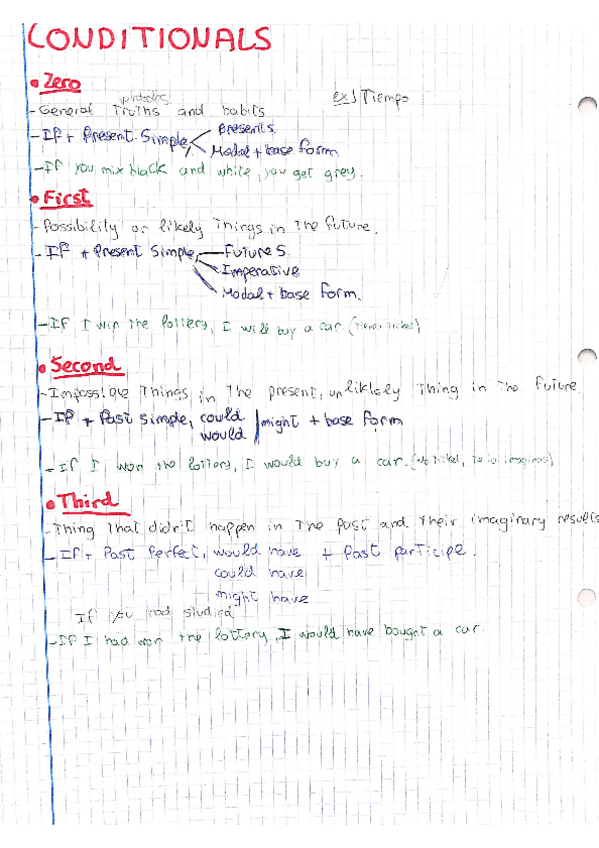 CONDITIONALS
• Zero
verdades
ex) Tiempo
- General Truths and habits
- If + Present Simple, Present S.
Modal + base form
- If you mix black and white, you get grey.
• First
- Possibility or likely Things in The future.
- If + Present Simple, Future S.
Imperative
Modal + base form.
- If I win the lottery, I will buy a car
• Second
- Impossible Things in The present, unliklely Thing in The future.
- If + Past simple, could | might + base form
would
- If I won the lottery, I would buy a car.
• Third
- Thing That didn't happen in The past and Their imaginary results
- If + Past Perfect, would have + Past participe.
could have
might have
If you had studied
- If I had won the lottery, I would have bought a car